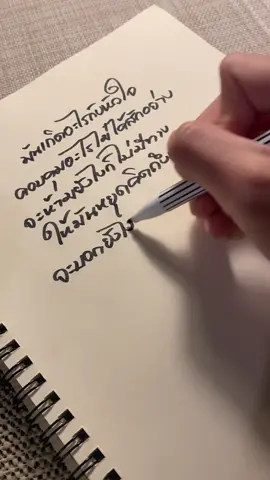 มันเกิดอะไรกับหัวใจ
ควบคุมอะไรไม่ได้สักอย่าง
จะห้ามยังไงก็ไม่มีทาง
ให้มันหยุดคิดถึง
จะบอกยังไ